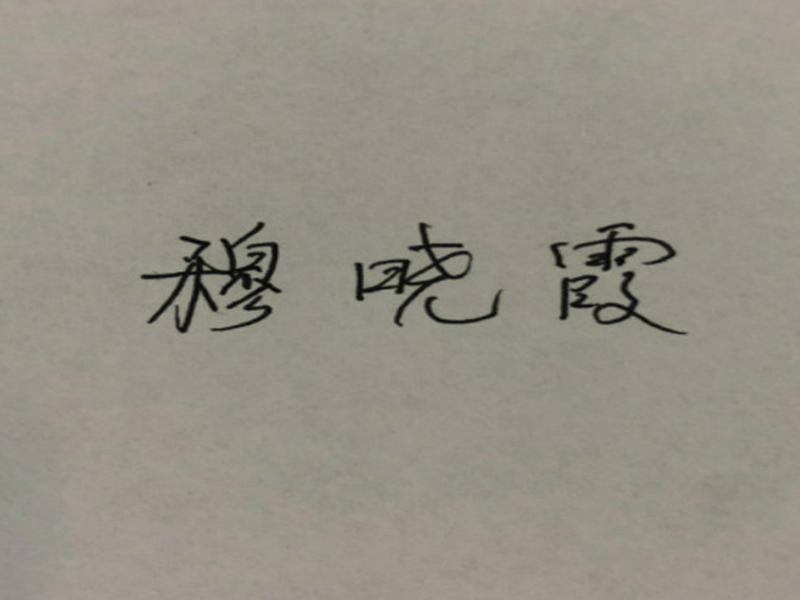 穆晓霞